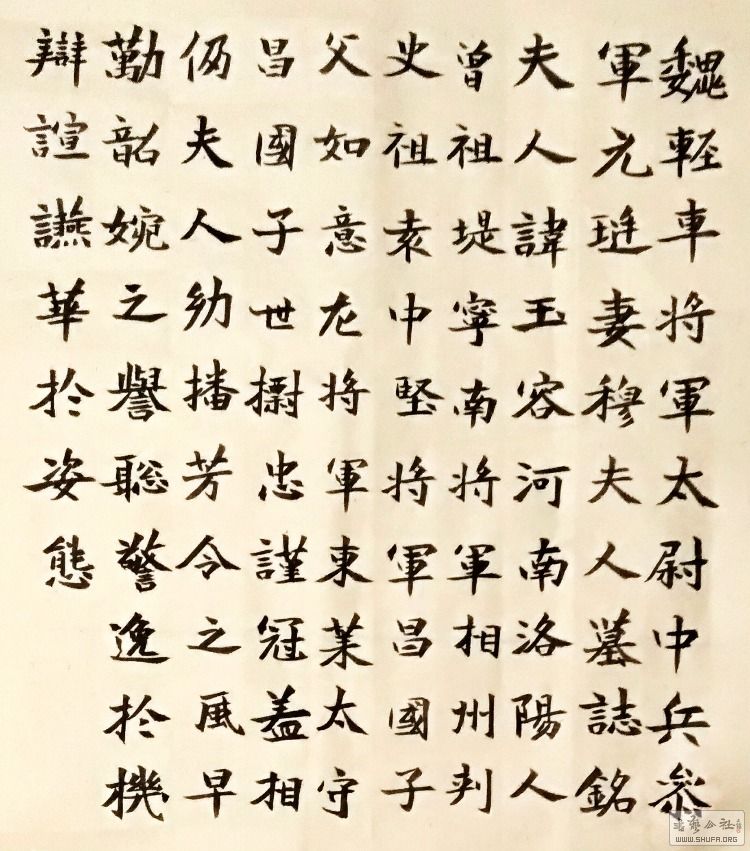 魏輕車将軍太尉中兵叅
軍元珽妻穆夫人墓誌銘
夫人諱玉容河南洛陽人
曾祖堤寧南将軍相州刾
史祖袁中堅将軍昌國子
父如意左将軍東莱太守
昌國子世忠謹冠盖相
仍夫人幼播芳令之風早
勤韶婉之譽聡警逸於機
辯諠讌華於姿態
WWW.SHUFA.ORG